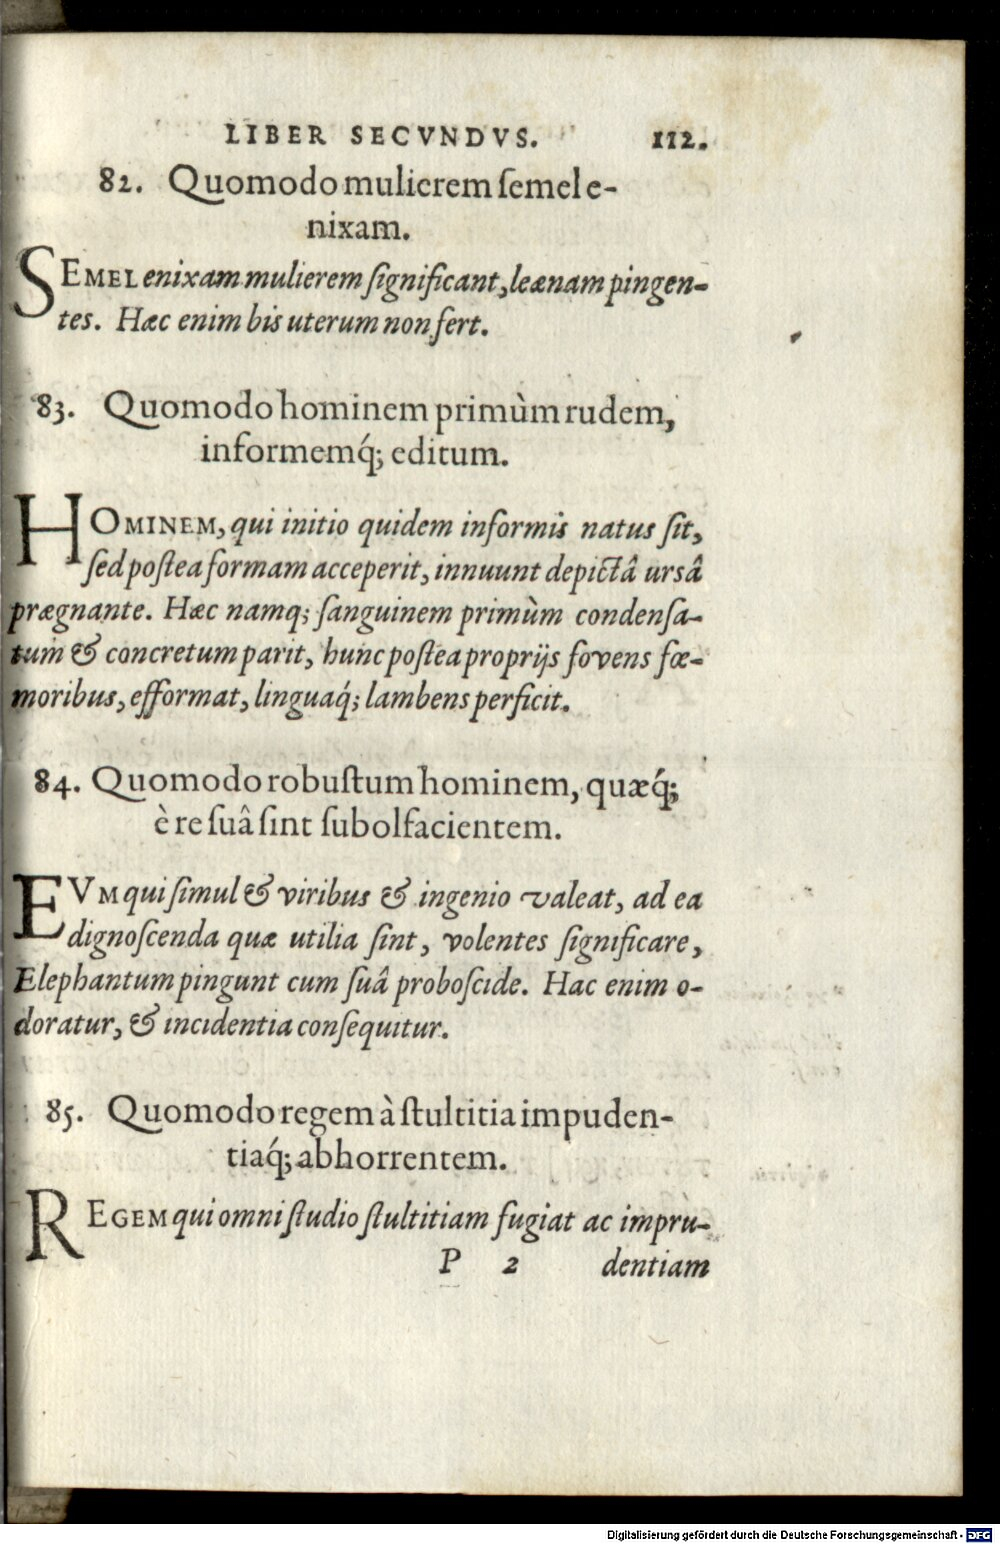 LIBER SECVNDVS. 112.
82. Quomodo mulierem semel e-
nixam.
SEMEL enixam mulierem significant, leænam pingen-
tes. Hæc enim bis uterum non fert.
83. Quomodo hominem primùm rudem,
informemq́; editum.
HOMINEM, qui initio quidem informis natus sit,
sed postea formam acceperit, innuunt depictâ ursâ
prægnante. Hæc namq; sanguinem primùm condensa-
tum & concretum parit, hunc postea proprijs fovens fœ-
moribus, efformat, linguaq́; lambens perficit.
84. Quomodo robustum hominem, quæq́;
è re suâ sint subolfacientem.
EVM qui simul & viribus & ingenio valeat, ad ea
dignoscenda quæ utilia sint, volentes significare,
Elephantum pingunt cum suâ proboscide. Hac enim o-
doratur, & incidentia consequitur.
85. Quomodo regem à stultitia impuden-
tiaq́; abhorrentem.
REGEM qui omni studio stultitiam fugiat ac impru-
P 2 dentiam
Digitalisierung gefördert durch die Deutsche Forschungsgemeinschaft - DFG